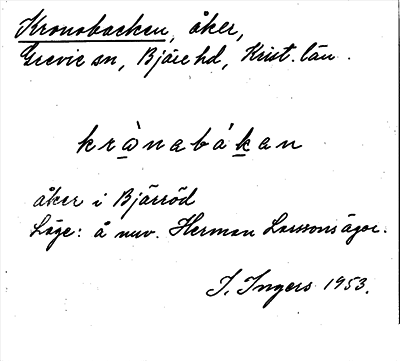 Kronobacken, åker,
Grevie sn, Bjäre hd, Krist. län.
krànabákan
åker i Bjärröd
Läge: å nuv. Herman Larssons ägor.
I. Ingers 1953.